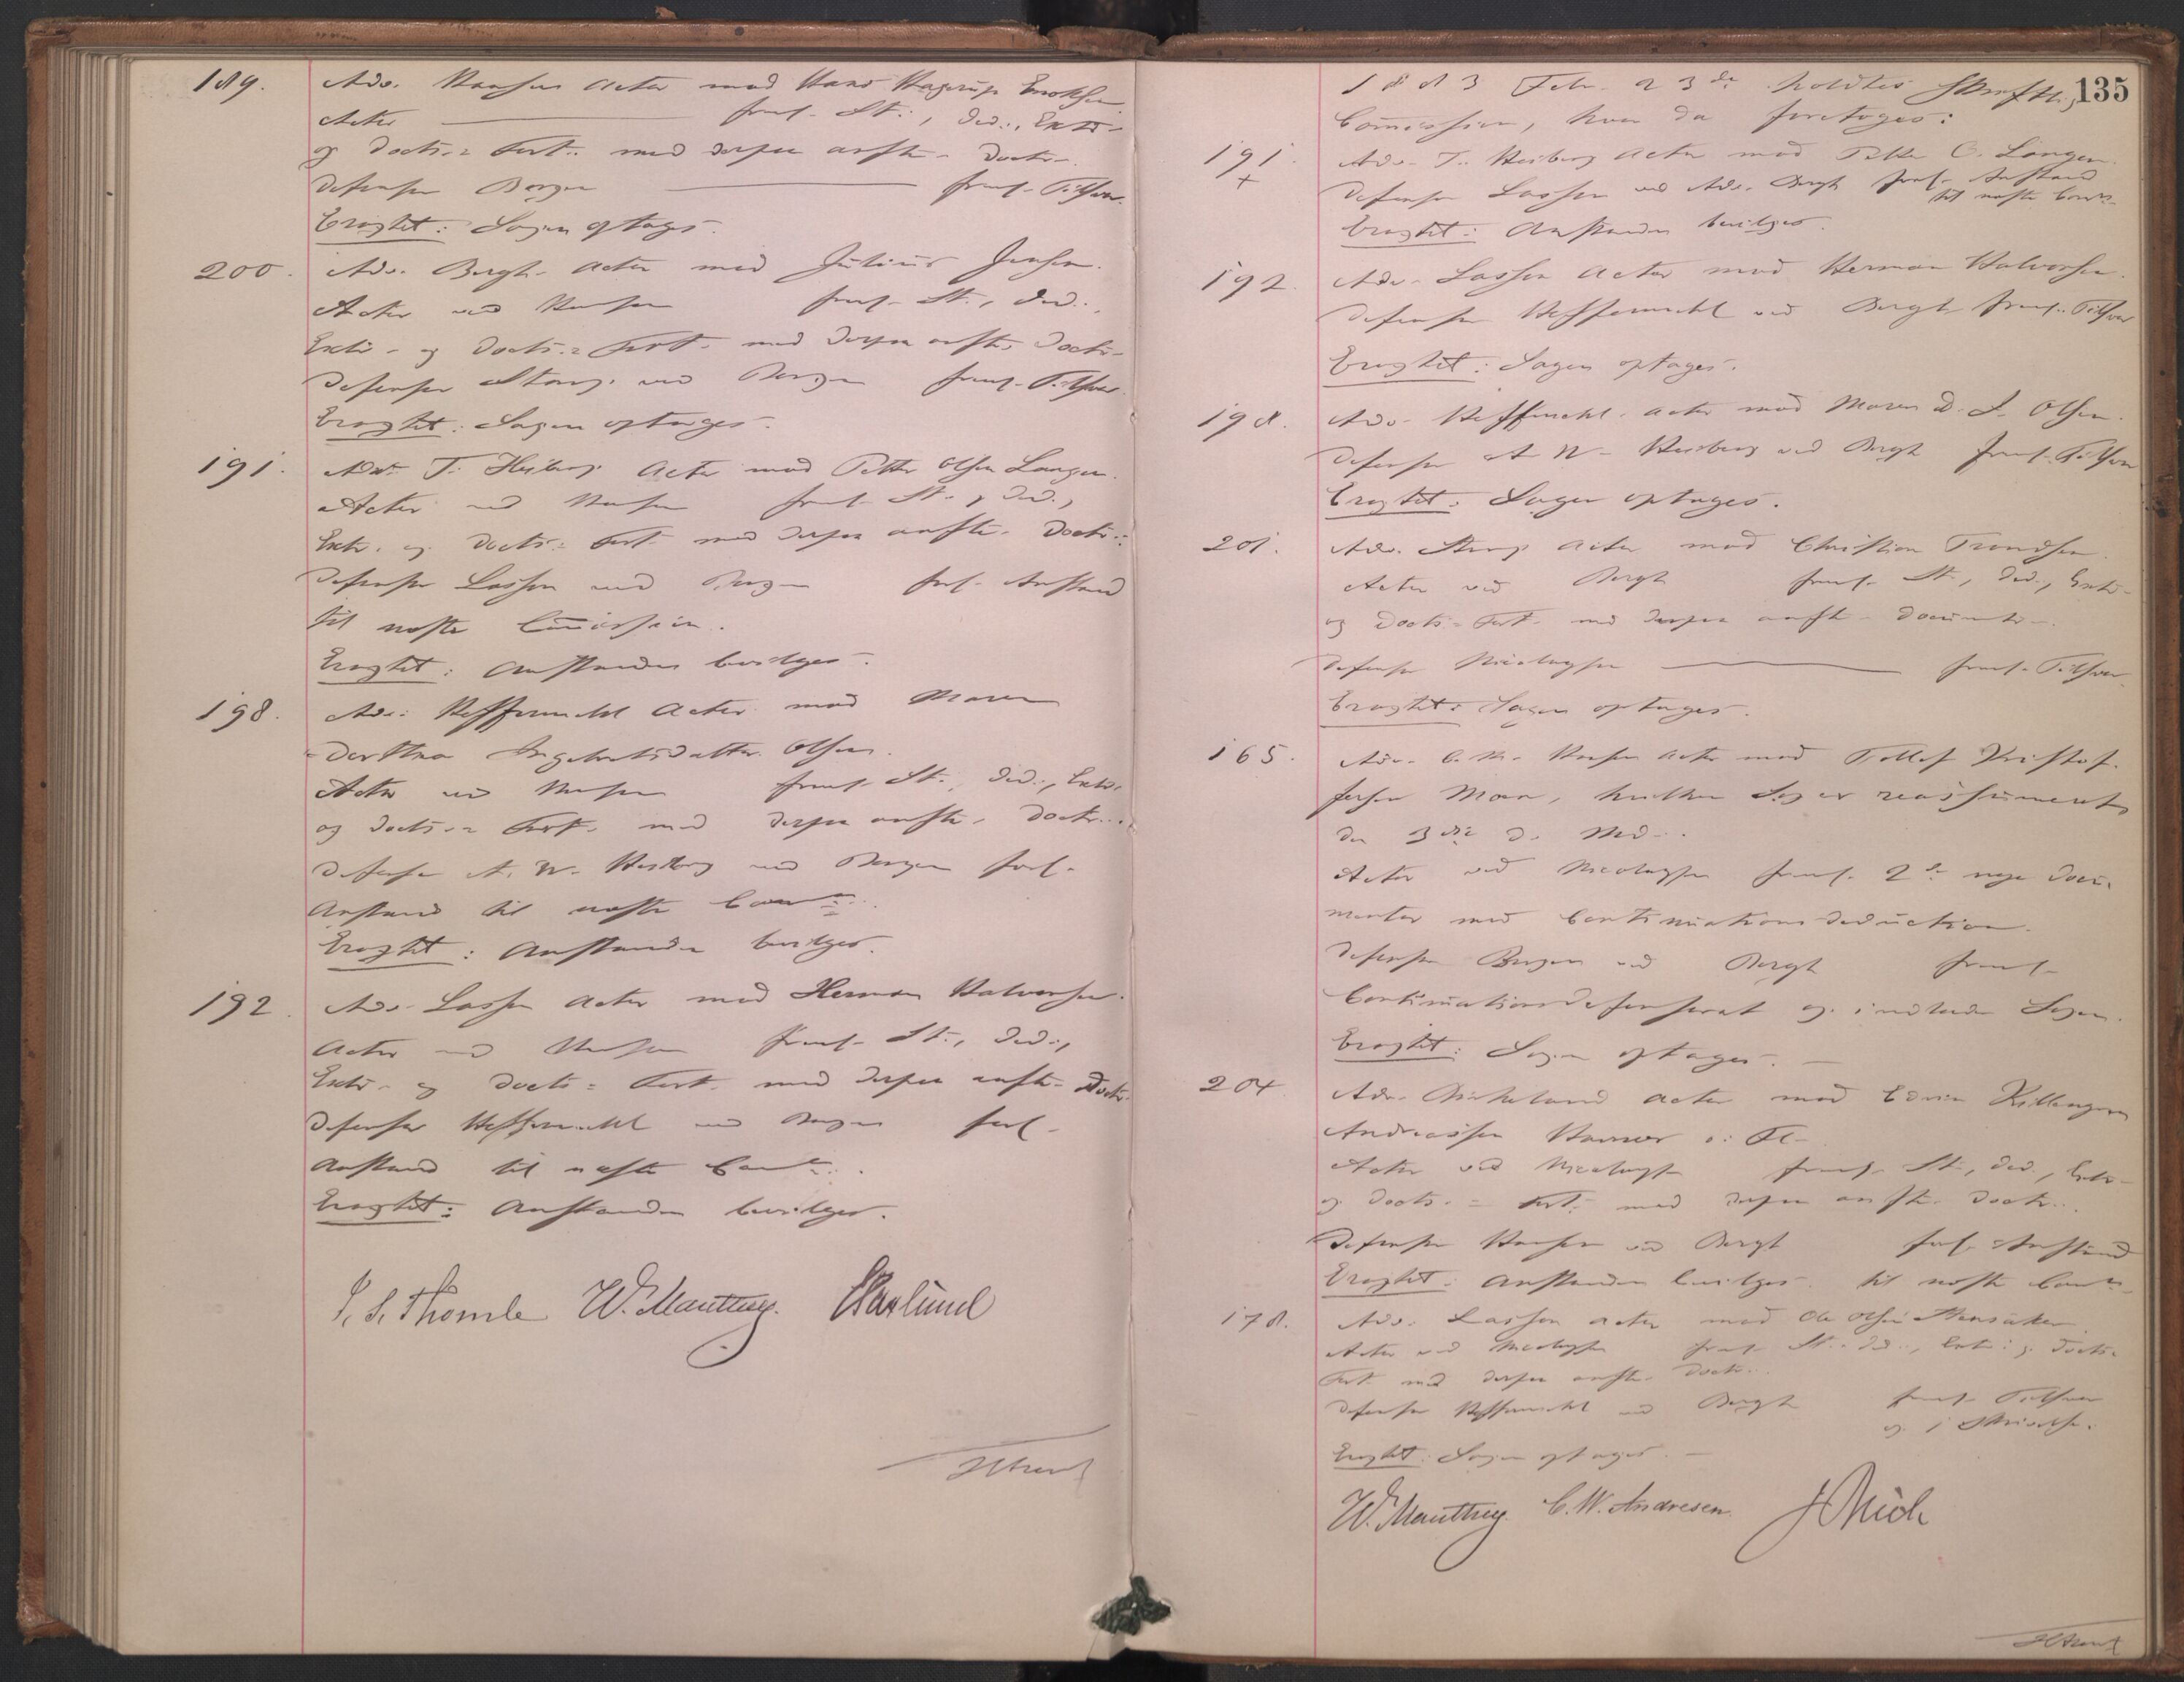 189. Adv. Hansen Actor mod Hans Hagerup Enoksen
Actor — freml. St., Ded., Extr.
og Docts.= Fort. med derpaa anførte Doctr.
Defensor Berger — freml. Tilsvar.
Eragtet: Sagen optages.
200. Adv. Bergh Actor mod Julius Jensen.
Actor ved Hansen freml. St., Ded.,
Extr. og Docts.= Fort. med derpaa anfte. Doctr.
Defensor Stang ved Berger freml. Tilsvar.
Eragtet: Sagen optages.
191. Adv. T. Heiberg Actor mod Petter Olsen Langen.
Actor ved Hansen freml. St., Ded.,
Extr. og Docts.= Fort. med derpaa anfte. Doctr.
Defensor Lassen ved Berger forl. Anstand
til næste Commission.
Eragtet: Anstanden bevilges.
198. Adv. Heffermehl Actor mod Maren
Dorthea Ingebretsdatter Olsen.
Actor ved Hansen freml. St., Ded., Extr.
og Docts.= Fort. med derpaa anfte. Doctr.
Defensor A. W. Heiberg ved Berger forl.
Anstand til næste Comn.
Eragtet: Anstanden bevilges.
192. Adv. Lassen Actor mod Herman Halvorsen.
Actor ved Hansen freml. St., Ded.,
Extr. og Docts.= Fort. med derpaa anfte. Doctr.
Defensor Heffermehl ved Berger forl.
Anstand til næste Comn.
Eragtet: Anstanden bevilges.
J. S. Thomle W. Manthey.
135
1883 Febr. 23de holdtes Skriftlig
Commission, hvor da foretoges:
191. Adv. T. Heiberg Actor mod Petter O. Langen.
+ Defensor Lassen ved Adv. Bergh forl. Anstand
til næste Comn.
Eragtet: Anstanden bevilges.
192. Adv. Lassen Actor mod Herman Halvorsen.
Defensor Heffermehl ved Bergh freml. Tilsvar
Eragtet: Sagen optages.
198. Adv. Heffermehl Actor mod Maren D. I. Olsen.
Defensor A. W. Heiberg ved Bergh freml. Tilsvar
Eragtet: Sagen optages.
201. Adv. Stang Actor mod Christian Trondsen.
Actor ved Bergh freml. St., Ded., Extr.
og Docts.= Fort. med derpaa anfte. Documtr.
Defensor Nicolaysen — freml. Tilsvar.
Eragtet: Sagen optages.
165. Adv. C. M. Hansen Actor mod Tellef Kristof-
fersen Moen, hvilken Sag er reassumeret
den 3die d. Md.
Actor ved Nicolaysen freml. 2de nye Docu-
menter med Continuationsdeduction.
Defensor Berger ved Bergh freml.
Continuationsdefensorat og indlader Sagen.
Eragtet: Sagen optages. —
204. Adv. Birkeland Actor mod Edvin
Andreassen
Actor ved Nicolaysen freml. St., Ded., Extr.
og Docts.= Fort. med derpaa anfte. Doctr.
Defensor Hansen ved Bergh forl. Anstand
Eragtet: Anstanden bevilges. til næste Comn.
178. Adv. Lassen Actor mod Ole Olsen
Actor ved Nicolaysen freml. St., Ded., Extr. og Docts.=
Fort. med derpaa anfte. Doctr.
Defensor Heffermehl ved Bergh freml. Tilsvar
og 1 Skrivelse.
Eragtet: Sagen optages. —
W. Manthey. C. W. Andresen.